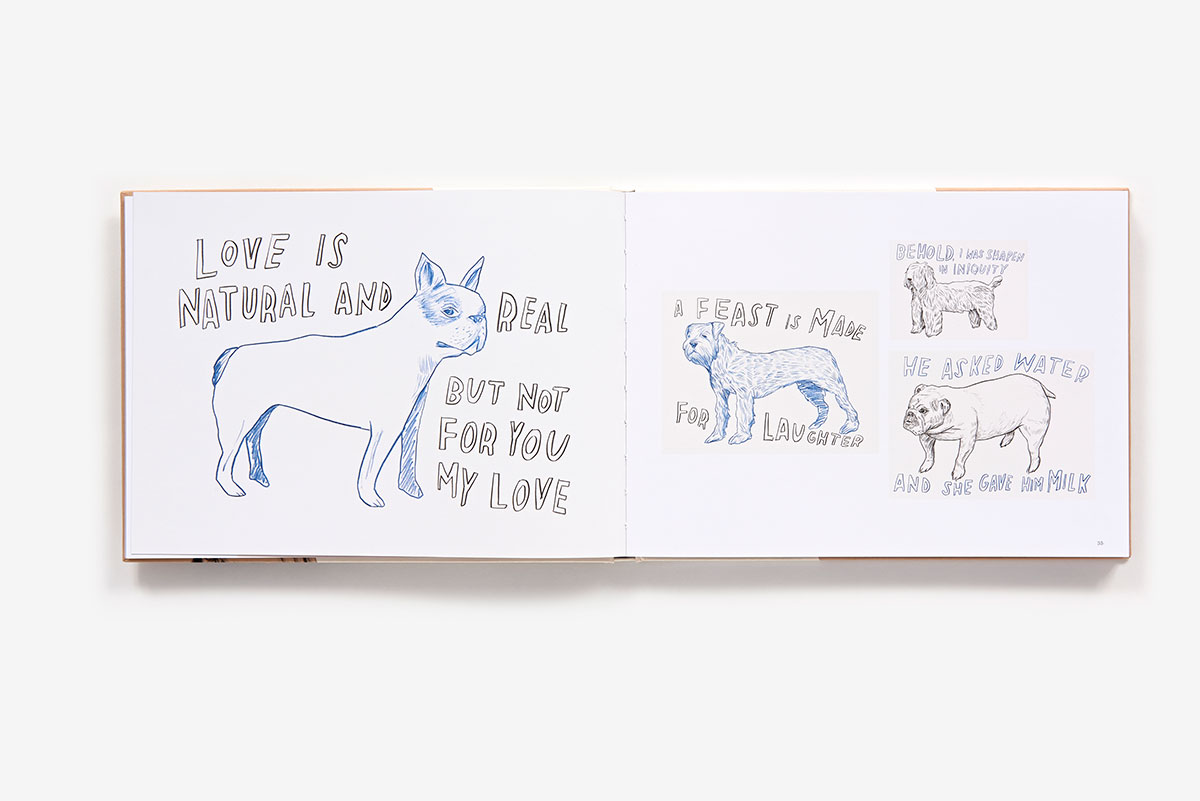 LOVE IS
NATURAL AND REAL
BUT NOT
FOR YOU
MY LOVE
A FEAST IS MADE
FOR LAUGHTER
BEHOLD, I WAS SHAPEN
IN INIQUITY
HE ASKED WATER
AND SHE GAVE HIM MILK
55